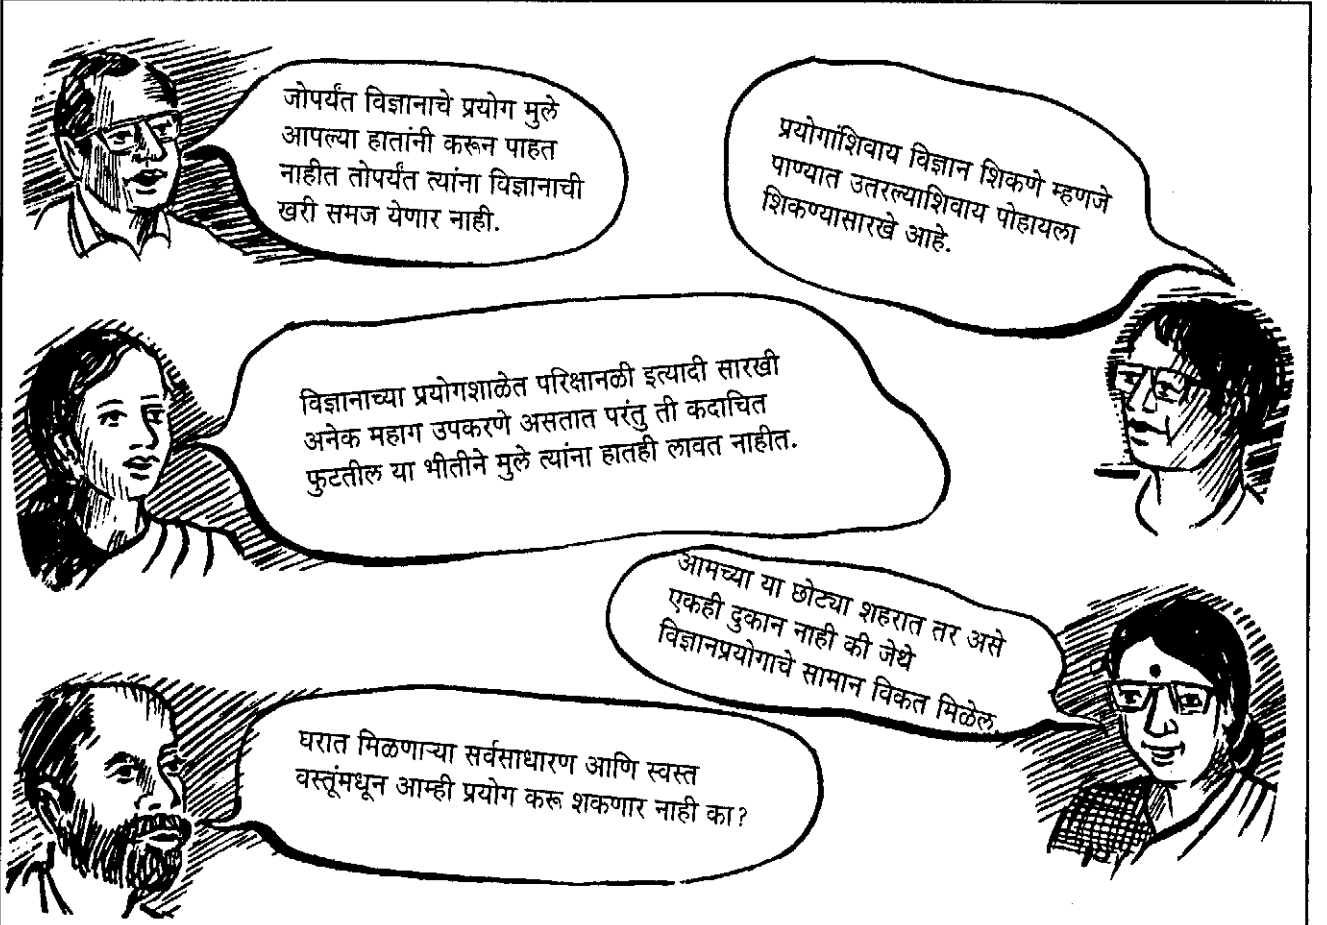 जोपर्यंत विज्ञानाचे प्रयोग मुले
आपल्या हातांनी करून पाहत
नाहीत तोपर्यंत त्यांना विज्ञानाची
खरी समज येणार नाही.
प्रयोगांशिवाय विज्ञान शिकणे म्हणजे
पाण्यात उतरल्याशिवाय पोहायला
शिकण्यासारखे आहे.
विज्ञानाच्या प्रयोगशाळेत परिक्षानळी इत्यादी सारखी
अनेक महाग उपकरणे असतात परंतु ती कदाचित
फुटतील या भीतीने मुले त्यांना हातही लावत नाहीत.
आमच्या या छोट्या शहरात तर असे
एकही दुकान नाही की जेथे
विज्ञानप्रयोगाचे सामान विकत मिळेल
घरात मिळणाऱ्या सर्वसाधारण आणि स्वस्त
वस्तूंमधून आम्ही प्रयोग करू शकणार नाही का?